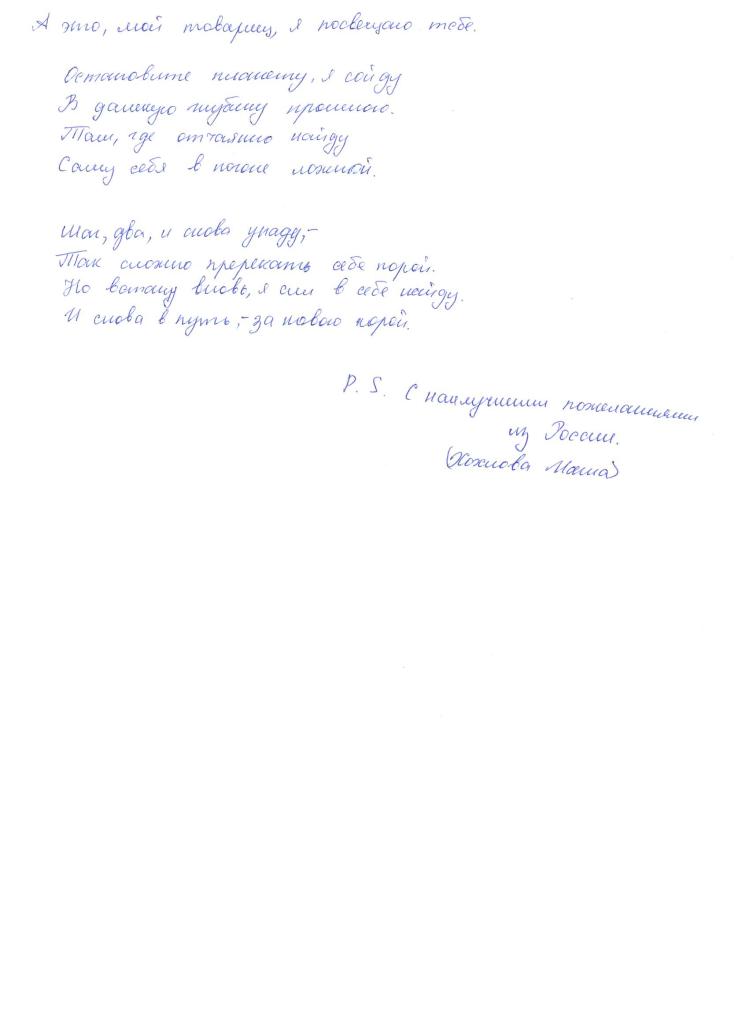 А это, мой товарищ, я посвещаю тебе.
Остановите планету, я сойду
В далекую глубину прошлого.
Там, где отчаянно найду
Саму себя в погоне ложной.
Шаг, два, и снова упаду,-
Так сложно пререкать себе порой.
Но встану вновь, я сил в себе найду.
И снова в путь,- за новою порой.
P. S. С наилучшими пожеланиями
из России.
(Хохлова Маша)